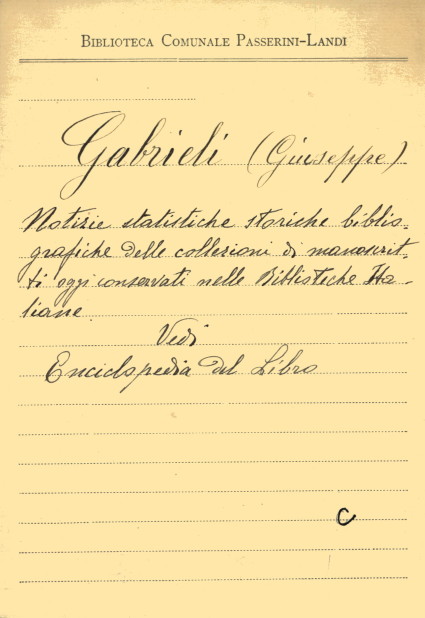 BIBLIOTECA COMUNALE PASSERINI-LANDI
Gabrieli (Giuseppe)
Notizie statistiche storiche biblio-
grafiche delle collezioni di manoscrit-
ti oggi conservati nelle Biblioteche Ita-
liane
Vedi
Enciclopedia del Libro
C